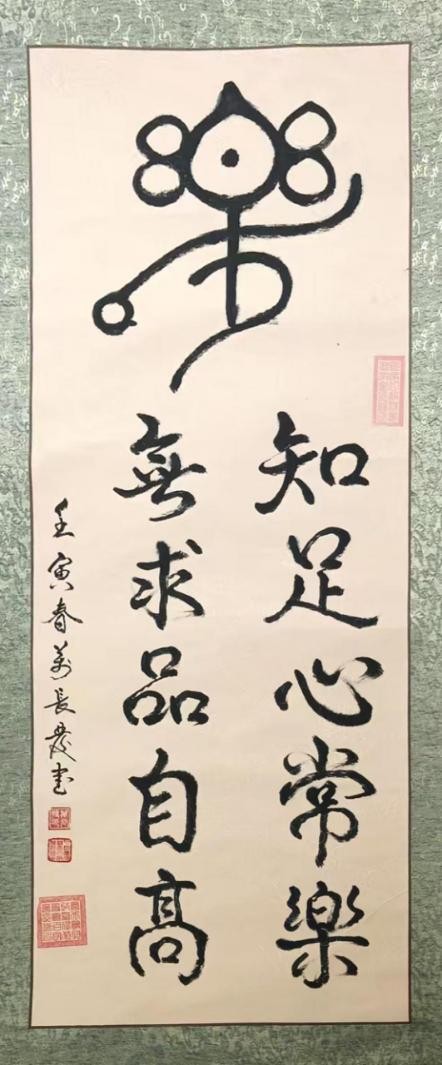 樂
知足心常樂
無求品自高
壬寅春萬長發書